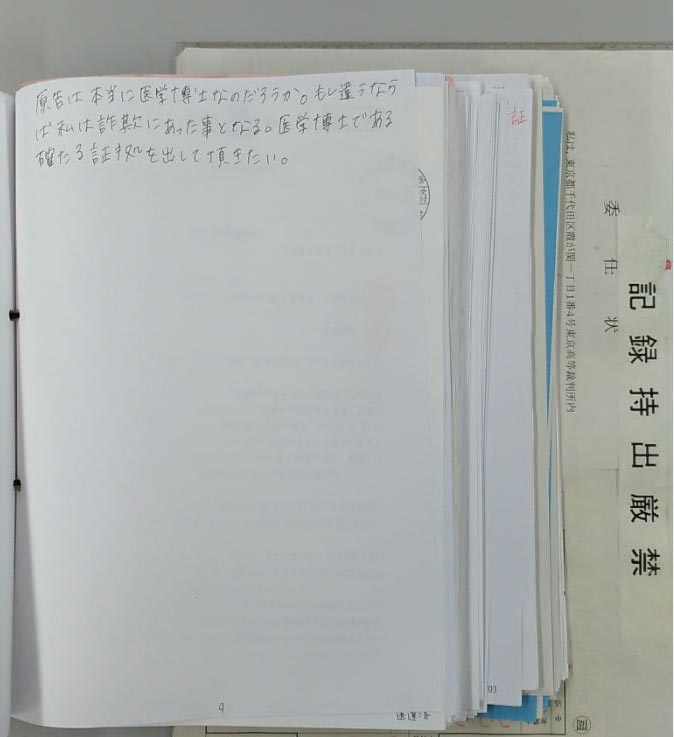 原告は本当に医学博士なのだろうか。もし違うなら
ば私は詐欺にあった事となる。医学博士である
確たる証拠を出して頂きたい。
9
証
03
委任状
私は、東京都千代田区霞が関一丁目1番4号東京高等裁判所内
記録持出厳禁